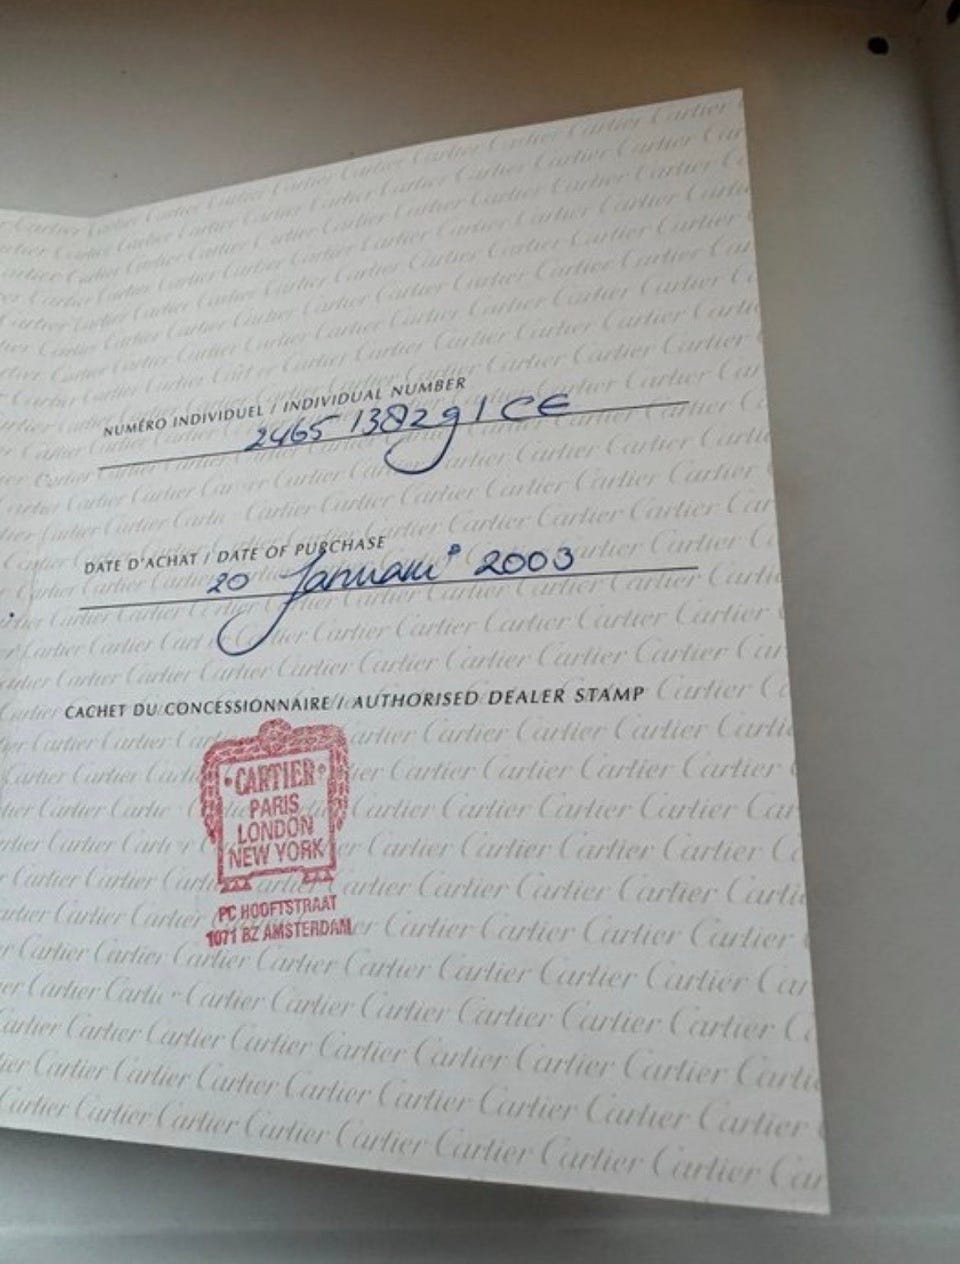 NUMÉRO INDIVIDUEL / INDIVIDUAL NUMBER
2465 1382g1 CE
DATE D'ACHAT / DATE OF PURCHASE
20 Januari 2003
CACHET DU CONCESSIONNAIRE / AUTHORISED DEALER STAMP
CARTIER
PARIS
LONDON
NEW YORK
PC HOOFTSTRAAT
1071 BZ AMSTERDAM